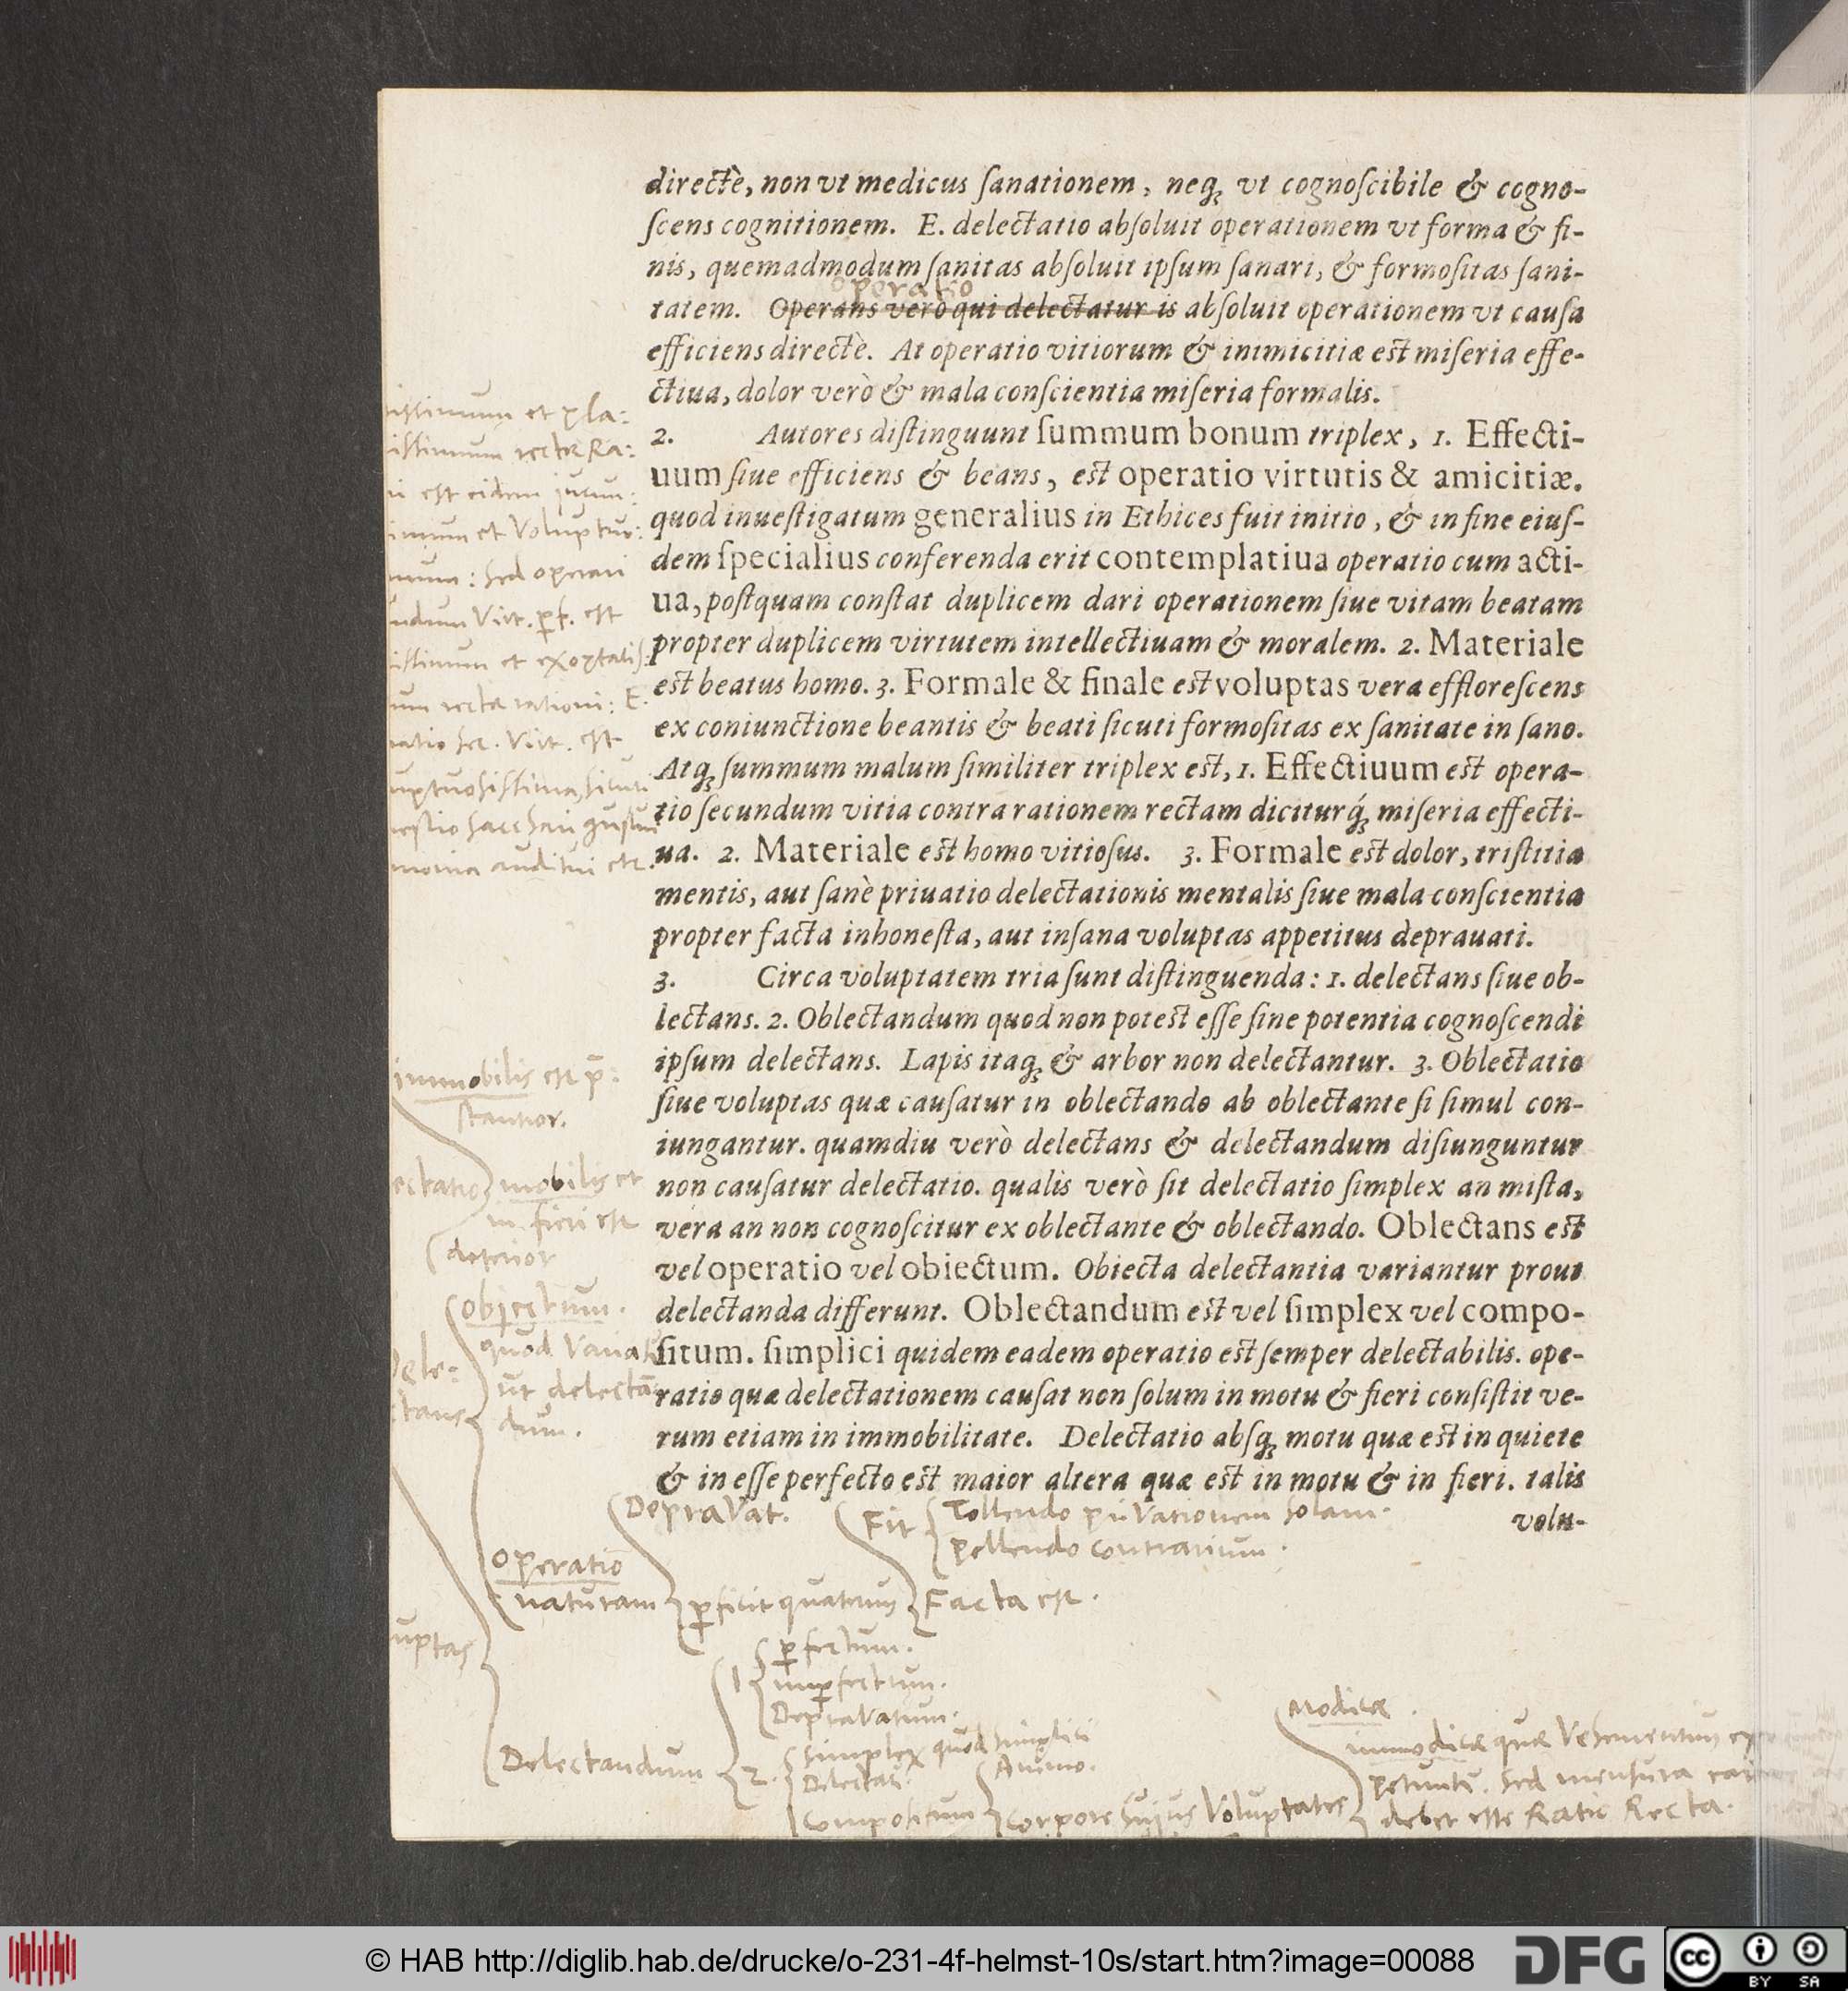 directè, non vt medicus ſanationem, neq́ꝫ vt cognoſcibile & cogno-
ſcens cognitionem. E. delectatio abſoluit operationem vt forma & fi-
nis, quemadmodum ſanitas abſoluit ipſum ſanari, & formoſitas ſani-
operatio
tatem. Operans verò qui delectatur is abſoluit operationem vt cauſa
efficiens directè. At operatio vitiorum & inimicitiæ est miſeria effe-
ctiua, dolor verò & mala conſcientia miſeria formalis.
2. Autores diſtinguunt ſummum bonum triplex, 1. Effecti-
uum ſiue efficiens & beans, est operatio virtutis & amicitiæ.
quod inueſtigatum generalius in Ethices fuit initio, & in fine eiuſ-
dem ſpecialius conferenda erit contemplatiua operatio cum acti-
ua, poſtquam conſtat duplicem dari operationem ſiue vitam beatam
propter duplicem virtutem intellectiuam & moralem. 2. Materiale
est beatus homo. 3. Formale & finale est voluptas vera effloreſcens
ex coniunctione beantis & beati ſicuti formoſitas ex ſanitate in ſano.
Atqꝫ ſummum malum ſimiliter triplex est, 1. Effectiuum est opera-
tio ſecundum vitia contra rationem rectam diciturq́ꝫ miſeria effecti-
ua. 2. Materiale est homo vitioſus. 3. Formale est dolor, triſtitia
mentis, aut ſanè priuatio delectationis mentalis ſiue mala conſcientia
propter facta inhoneſta, aut inſana voluptas appetitus deprauati.
3. Circa voluptatem tria ſunt diſtinguenda: 1. delectans ſiue ob-
lectans. 2. Oblectandum quod non potest eſſe ſine potentia cognoſcendi
ipſum delectans. Lapis itaqꝫ & arbor non delectantur. 3. Oblectatio
ſiue voluptas quæ cauſatur in oblectando ab oblectante ſi ſimul con-
iungantur. quamdiu verò delectans & delectandum diſiunguntur
non cauſatur delectatio. qualis verò ſit delectatio ſimplex an miſta,
vera an non cognoſcitur ex oblectante & oblectando. Oblectans est
vel operatio vel obiectum. Obiecta delectantia variantur prout
delectanda differunt. Oblectandum est vel ſimplex vel compo-
ſitum. ſimplici quidem eadem operatio est ſemper delectabilis. ope-
ratio quæ delectationem cauſat non ſolum in motu & fieri conſiſtit ve-
rum etiam in immobilitate. Delectatio abſqꝫ motu quæ est in quiete
& in eſſe perfecto est maior altera quæ est in motu & in fieri. talis
volu-
issimum et pla:
issimum rectæ Ra:
est eidem jucun:
imum et Voluptur:
mum: sed operari
ndum Virt. p̱f. est
issimum et exoptatis:
um rectæ rationi: E.
ratio sec. Virt. est
uptuosissima, sicuti
gestio sacchari gustui
monia auditui etc.
immobilis est p̄:
stantior.
ectatio mobilis et
in fieri est
deterior
objectum.
quod Variat
Dele: ut delectan
ctans dum.
DepraVat. Fit Tollendo priVationem solam.
pellendo contrarium.
operatio
naturam p̱ficit quatenus Facta est.
uptas
1 p̱fectum.
imp̱fectum.
DepraVatum.
Delectandum 2. simplex quod simplici
Delectat. Animo.
compositum corpore hujus Voluptates
Modicæ.
immodicæ quæ Vehementius
petunt. sed mensura
debet esse Ratio Recta.
© HAB http://diglib.hab.de/drucke/o-231-4f-helmst-10s/start.htm?image=00088
DFG
cc
BY SA